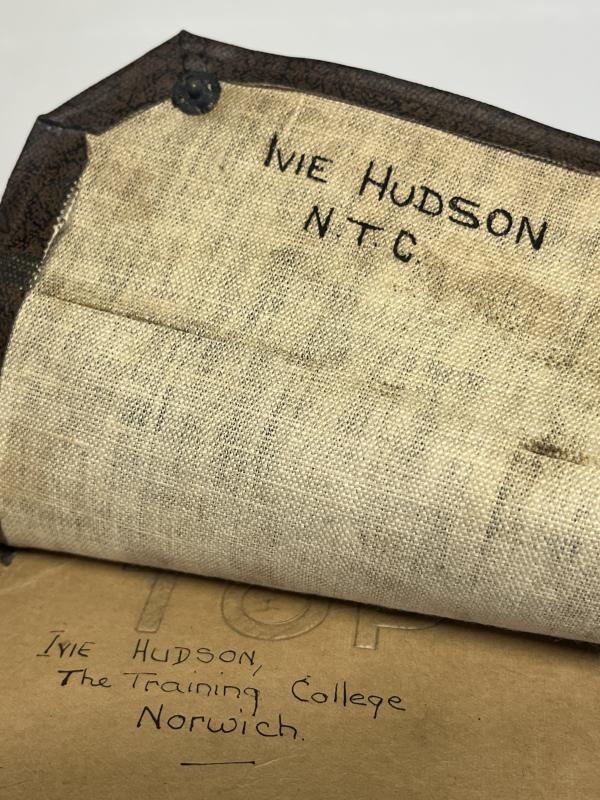 IVIE HUDSON
N.T.C.
TOP
IVIE HUDSON,
The Training College
Norwich.